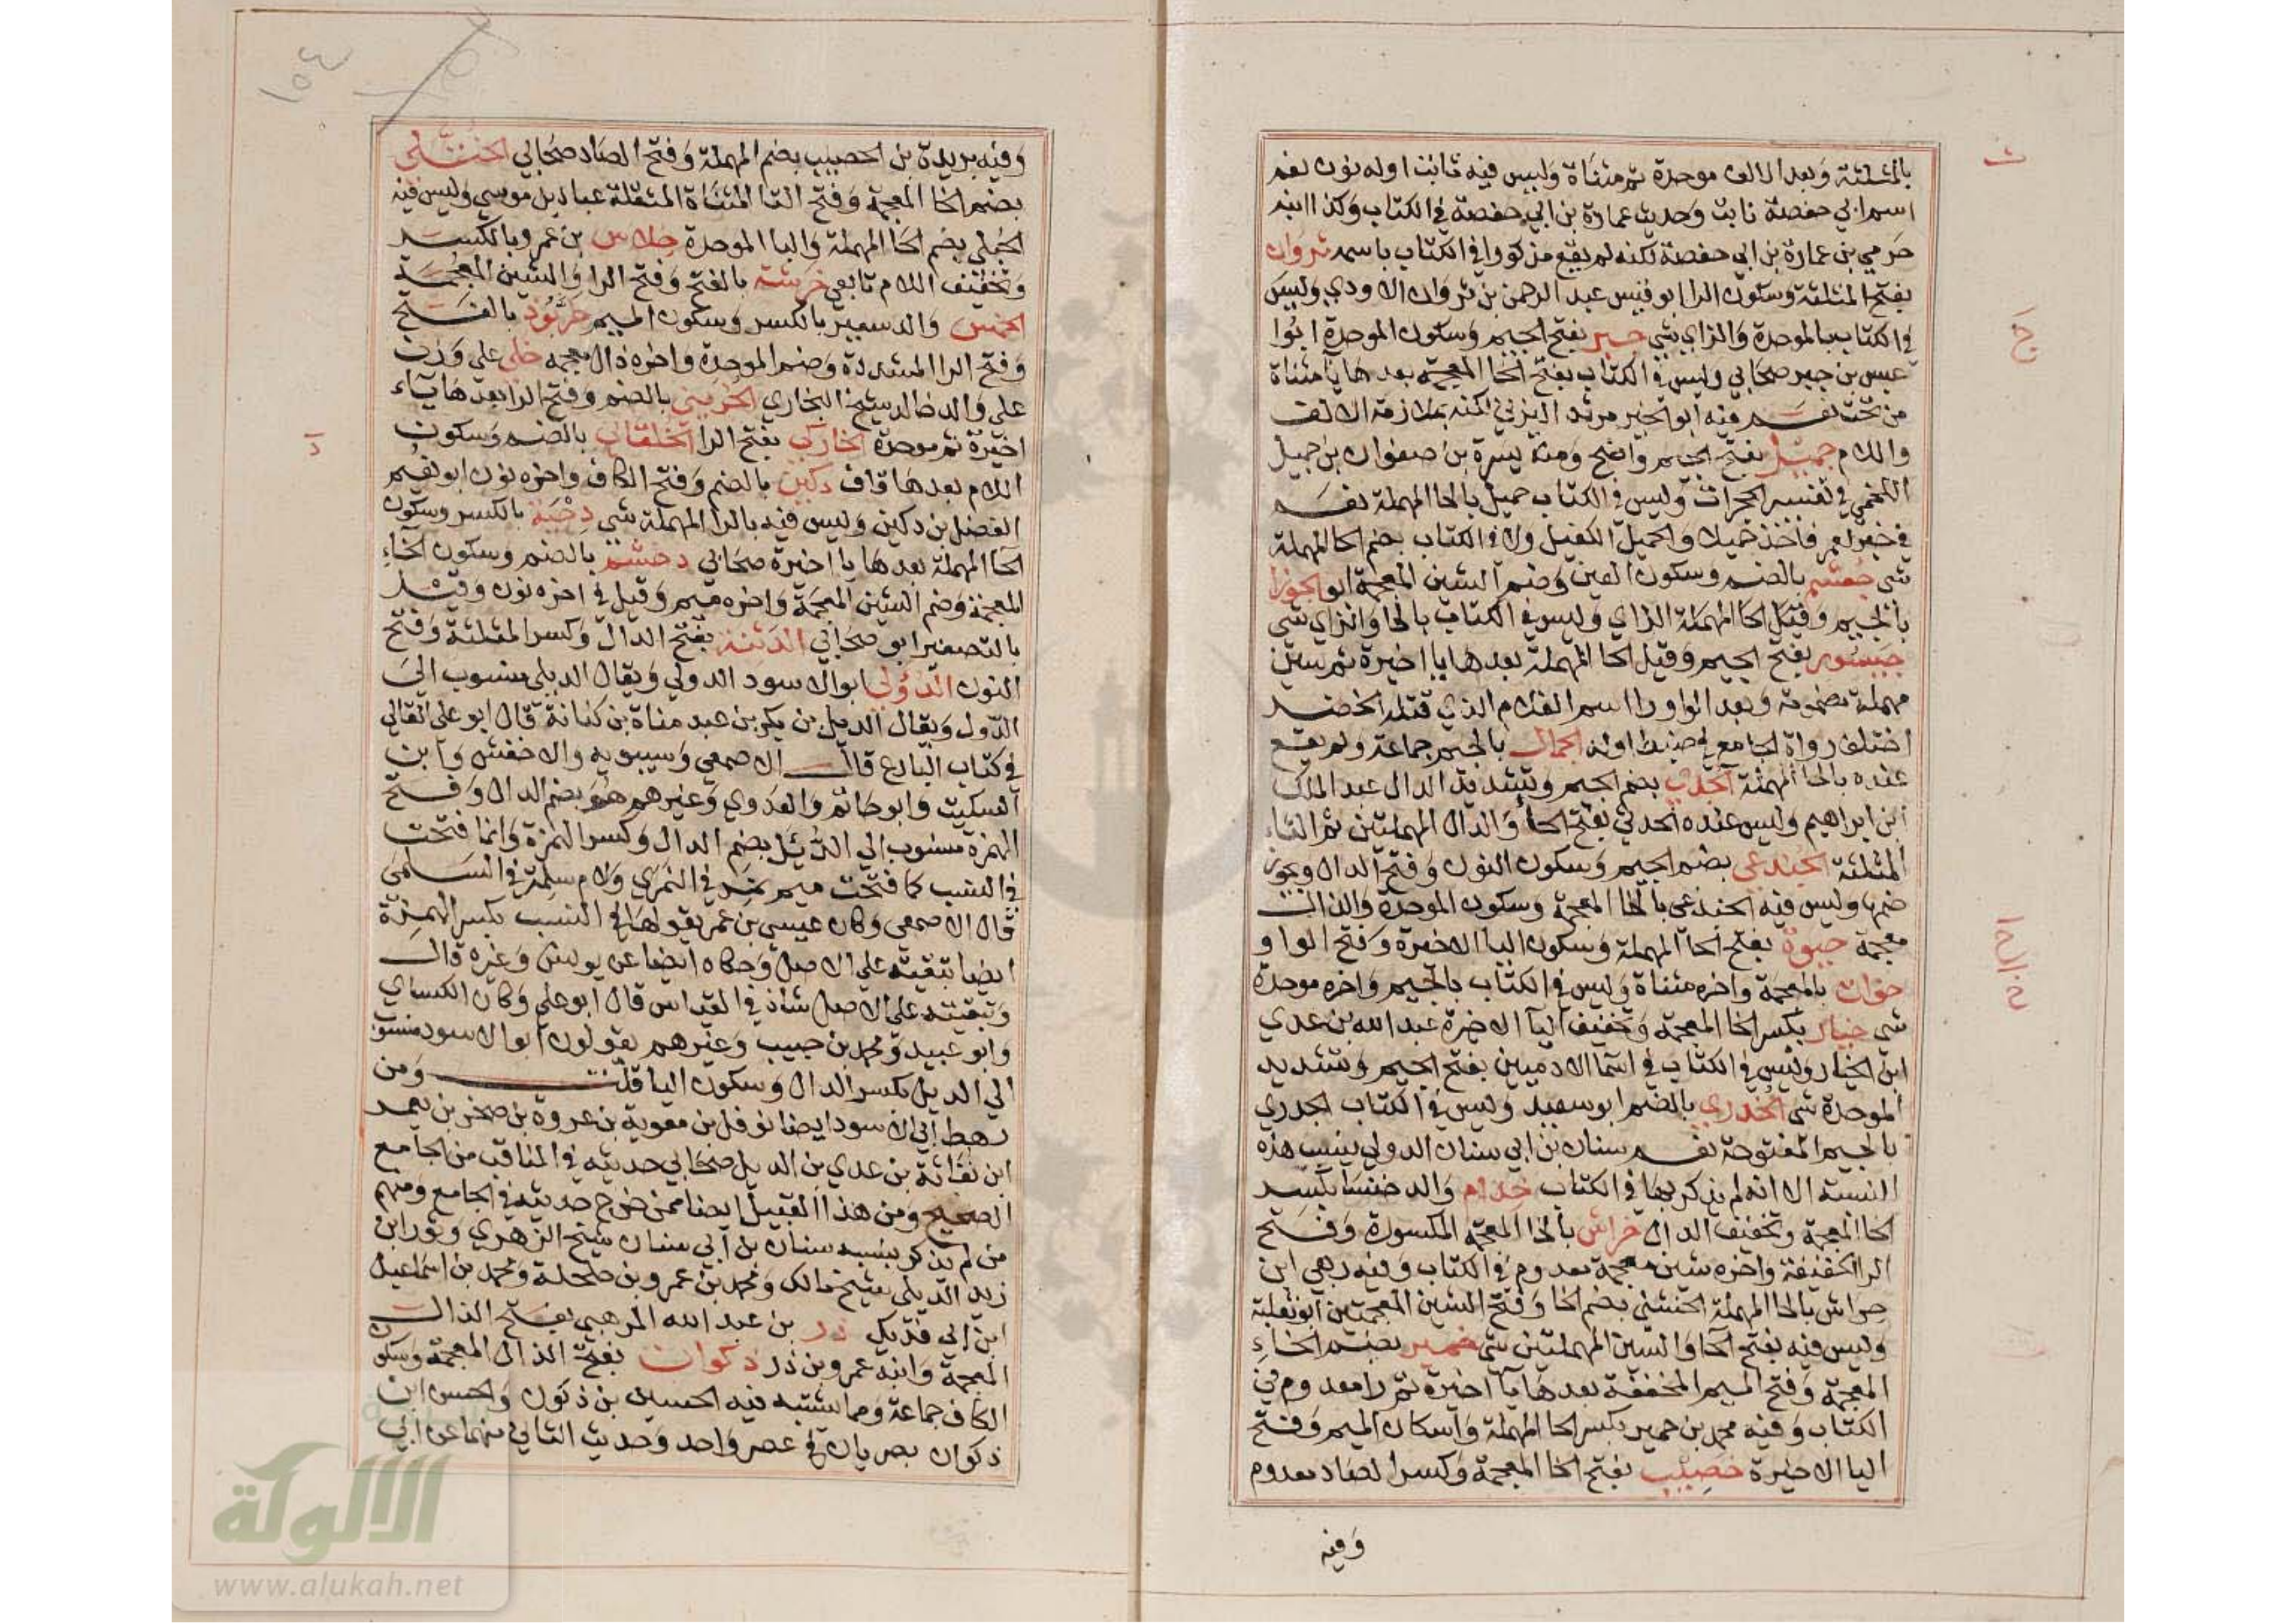 بالمثلثة وبعد الالف موحدة ثم مثناة وليس فيه نابت اوله نون نعم
اسم ابي حفصة نابت وحديث عمارة بن ابي حفصة في الكتاب وكذا ابنه
حرمي بن عمارة بن ابي حفصة لكنه لم يقع مذكورا في الكتاب باسمه ثروان
بفتح المثلثة وسكون الرا ابو قيس عبد الرحمن بن ثروان الاودي وليس
في الكتاب بالموحدة والزاي شي جبر بفتح الجيم وسكون الموحدة ابوا
عبس بن جبر صحابي وليس في الكتاب بفتح الخا المعجمة بعدها يا مثناة
من تحت نعم فيه ابو الخير مرثد اليزني لكنه بملازمة الالف
واللام جميل بفتح الجيم واضح ومنه يسرة بن صفوان بن جميل
اللخمي في تفسير الحجرات وليس في الكتاب حميل بالحا المهملة نعم
في خبر لعمر فاخذ حميلا والحميل الكفيل ولا في الكتاب بضم الحا المهملة
شي جعشم بالضم وسكون العين وضم الشين المعجمة ابو الجوزا
بالجيم وقبل الحا المهملة الزاي وليس في الكتاب بالحا والزاي شي
جيسور بفتح الجيم وقيل الحا المهملة بعدها يا اخيرة ثم سين
مهملة مضمومة وبعد الواو را اسم الغلام الذي قتله الخضر
اختلف رواة الجامع في ضبط اوله الجمال بالجيم جماعة ولم يقع
عنده بالحا المهملة الجدي بضم الجيم وتشديد الدال عبد الملك
ابن ابراهيم وليس عنده الحدثي بفتح الحا والدال المهملتين ثم الثاء
المثلثة الجندعي بضم الجيم وسكون النون وفتح الدال ويجوز
ضمها وليس فيه الخبذعي بالخا المعجمة وسكون الموحدة والذال
معجمة حيوة بفتح الحا المهملة وسكون اليا الاخيرة وفتح الواو
خوات بالمعجمة واخره مثناة وليس في الكتاب بالجيم واخره موحدة
شي خيار بكسر الخا المعجمة وتخفيف اليا الاخيرة عبد الله بن عدي
ابن الخيار وليس في الكتاب في اسما الادميين بفتح الجيم وتشديد
الموحدة شي الخدري بالضم ابو سعيد وليس في الكتاب الجدري
بالجيم المفتوحة نعم سنان بن ابي سنان الدولي ينسب هذه
النسبة الا انه لم يذكر بها في الكتاب خذام والد خنسا بكسر
الخا المعجمة وتخفيف الدال خراش بالخا المعجمة المكسورة وفتح
الرا الخفيفة واخره شين معجمة معدوم في الكتاب وفيه ربعي ابن
حراش بالحا المهملة الخشني بضم الخا وفتح الشين المعجمتين ابو ثعلبة
وليس فيه بفتح الحا والسين المهملتين شي خمير بضم الخاء
المعجمة وفتح الميم المخففة بعدها يا اخيرة ثم را معدوم في
الكتاب وفيه محمد بن حمير بكسر الحا المهملة واسكان الميم وفتح
اليا الاخيرة خصيب بفتح الخا المعجمة وكسر الصاد معدوم
وفيه
ث
ج ا
خ ال ح ا
١٥٤
وفيه بريدة بن الحصيب بضم المهملة وفتح الصاد صحابي الختلي
بضم الخا المعجمة وفتح التا المثناة المثقلة عباد بن موسي وليس فيه
الحبلي بضم الحا المهملة والبا الموحدة خلاس بن عمرو بالكسر
وتخفيف اللام تابعي خرشة بالفتح وفتح الرا والشين المعجمة
الخمس والد سعير بالكسر وسكون الميم خربوذ بالفتح
وفتح الرا المشددة وضم الموحدة واخره ذال معجمه خلي علي وزن
علي والد خالد شيخ البخاري الخريبي بالضم وفتح الرا بعدها ياء
اخيرة ثم موحدة الخاركي بفتح الرا الخلقاني بالضم وسكون
اللام بعدها قاف دكين بالضم وفتح الكاف واخره نون ابو نعيم
الفضل بن دكين وليس فيه بالرا المهملة شي دحية بالكسر وسكون
الحا المهملة بعدها يا اخيرة صحابي دخشم بالضم وسكون الخاء
المعجمة وضم الشين المعجمة واخره ميم وقيل في اخره نون وقيل
بالتصغير ابو صحابي الدثنة بفتح الدال وكسر المثلثة وفتح
النون الدؤلي ابو الاسود الدولي ويقال الديلي منسوب الي
الدول ويقال الديل بن بكر بن عبد مناة بن كنانة قال ابو علي القالي
في كتاب البارع قال الاصمعي وسيبويه والاخفش وابن
السكيت وابو حاتم والعدوي وغيرهم هو بضم الدال وفتح
الهمزة منسوب الي الدئل بضم الدال وكسر الهمزة وانما فتحت
في النسب كما فتحت ميم نمر في النمري ولام سلمة في السلمي
قال الاصمعي وكان عيسي بن عمر يقولها في النسب بكسر الهمزة
ايضا تبقية علي الاصل وحكاه ايضا عن يونس وغيره قال
وتبقيته علي الاصل شاذ في القياس قال ابو علي وكان الكساي
وابو عبيد ومحمد بن حبيب وغيرهم يقولون ابو الاسود منسوب
الي الديل بكسر الدال وسكون اليا قلت ومن
رهط ابي الاسود ايضا نوفل بن معوية بن عروة بن صخر بن يعمر
ابن نفاثة بن عدي بن الديل صحابي حديثه في المناقب من الجامع
الصحيح ومن هذا القبيل ايضا ممن خرج حديثه في الجامع ومنهم
من لم يذكر بنسبه سنان بن ابي سنان شيخ الزهري وثور ابن
زيد الديلي شيخ مالك ومحمد بن عمرو بن حلحلة ومحمد بن اسماعيل
ابن ابي فديك ذر بن عبد الله المرهبي بفتح الذال
المعجمة وابنه عمر وبن ذر ذكوان بفتح الذال المعجمة وسكون
الكاف جماعة ومما يشتبه فيه الحسين بن ذكون والحسن ابن
ذكوان بصريان في عصر واحد وحديث الثاني منهما عن ابي
د
الالوكة
www.alukah.net